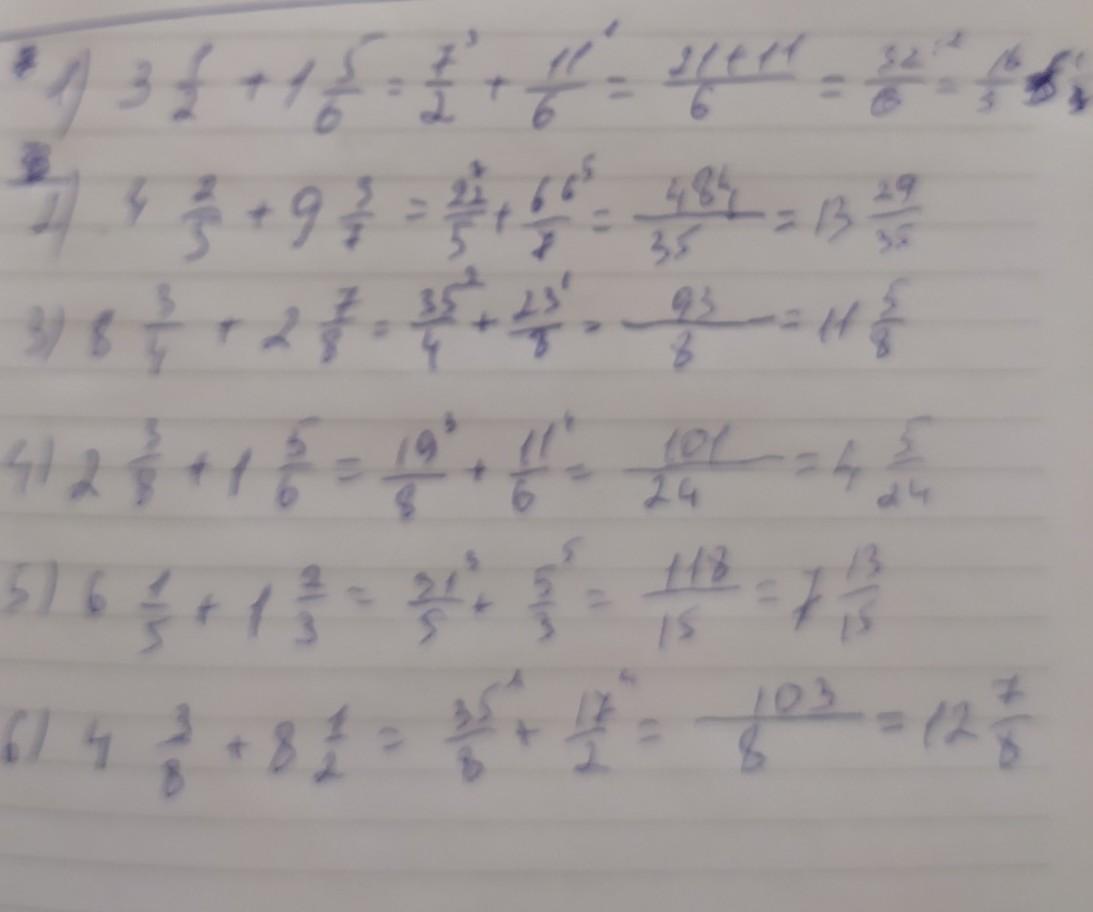 1) 3 1/2 + 1 5/6 = 7/2 ³ + 11/6 ¹ = 21+11/6 = 32/6 ² = 16/3
2) 4 2/5 + 9 3/7 = 22/5 ⁷ + 66/7 ⁵ = 484/35 = 13 29/35
3) 8 3/4 + 2 7/8 = 35/4 ² + 23/8 ¹ = 93/8 = 11 5/8
4) 2 3/8 + 1 5/6 = 19/8 ³ + 11/6 ⁴ = 101/24 = 4 5/24
5) 6 1/5 + 1 2/3 = 31/5 ³ + 5/3 ⁵ = 118/15 = 7 13/15
6) 4 3/8 + 8 1/2 = 35/8 ¹ + 17/2 ⁴ = 103/8 = 12 7/8